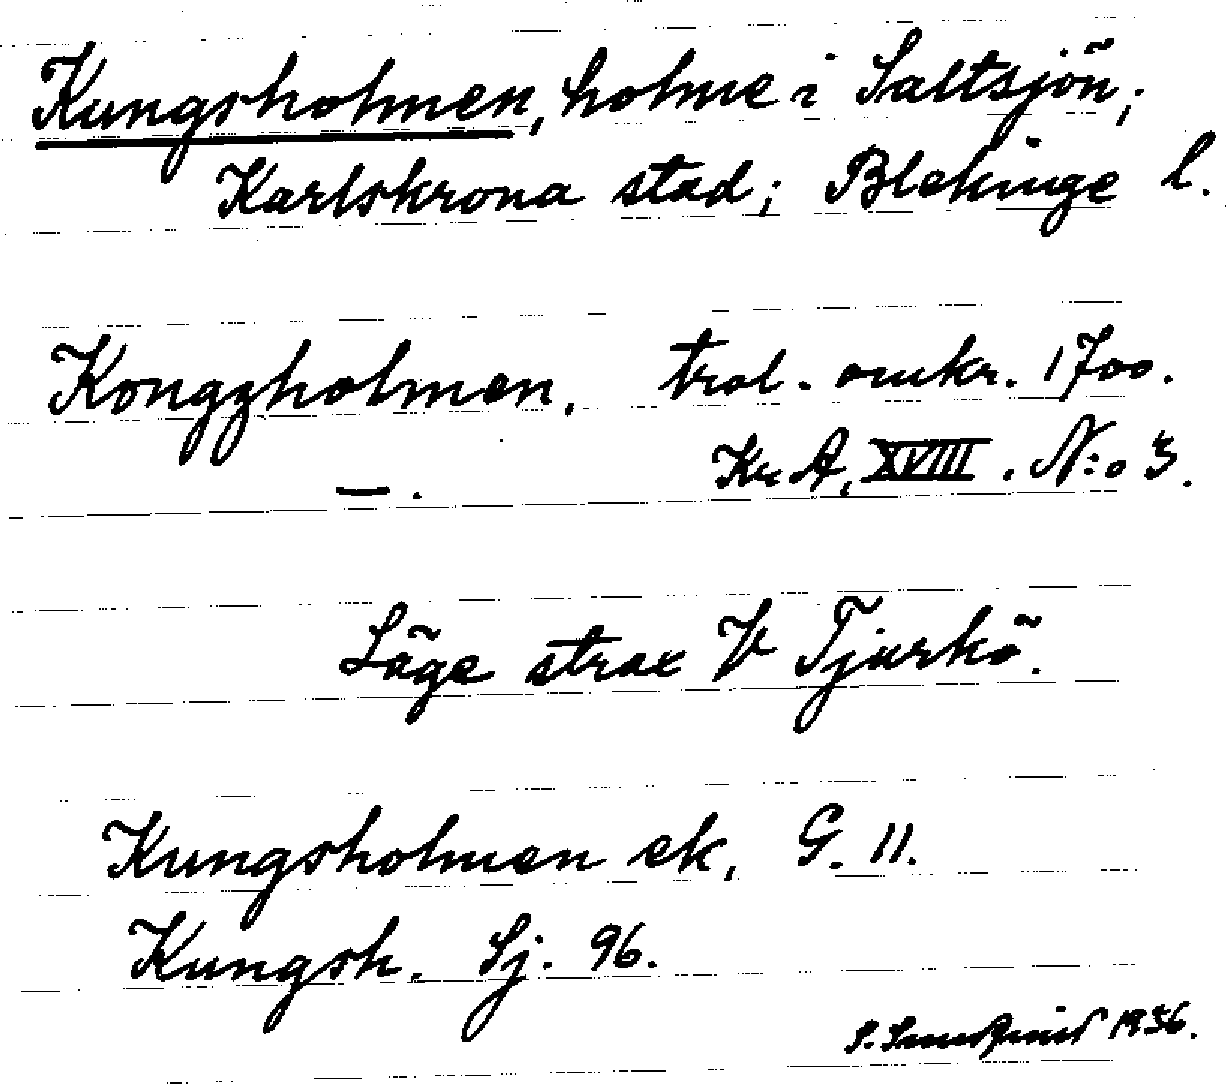 Kungsholmen, holme i Saltsjön;
Karlskrona stad; Blekinge l.
Kongzholmen. trol. omkr. 1700.
—. Kr. A. XVIII. N:o 3.
Läge strax V Tjurkö.
Kungsholmen ek, G. 11.
Kungsh. Sj. 96.
S. 1936.